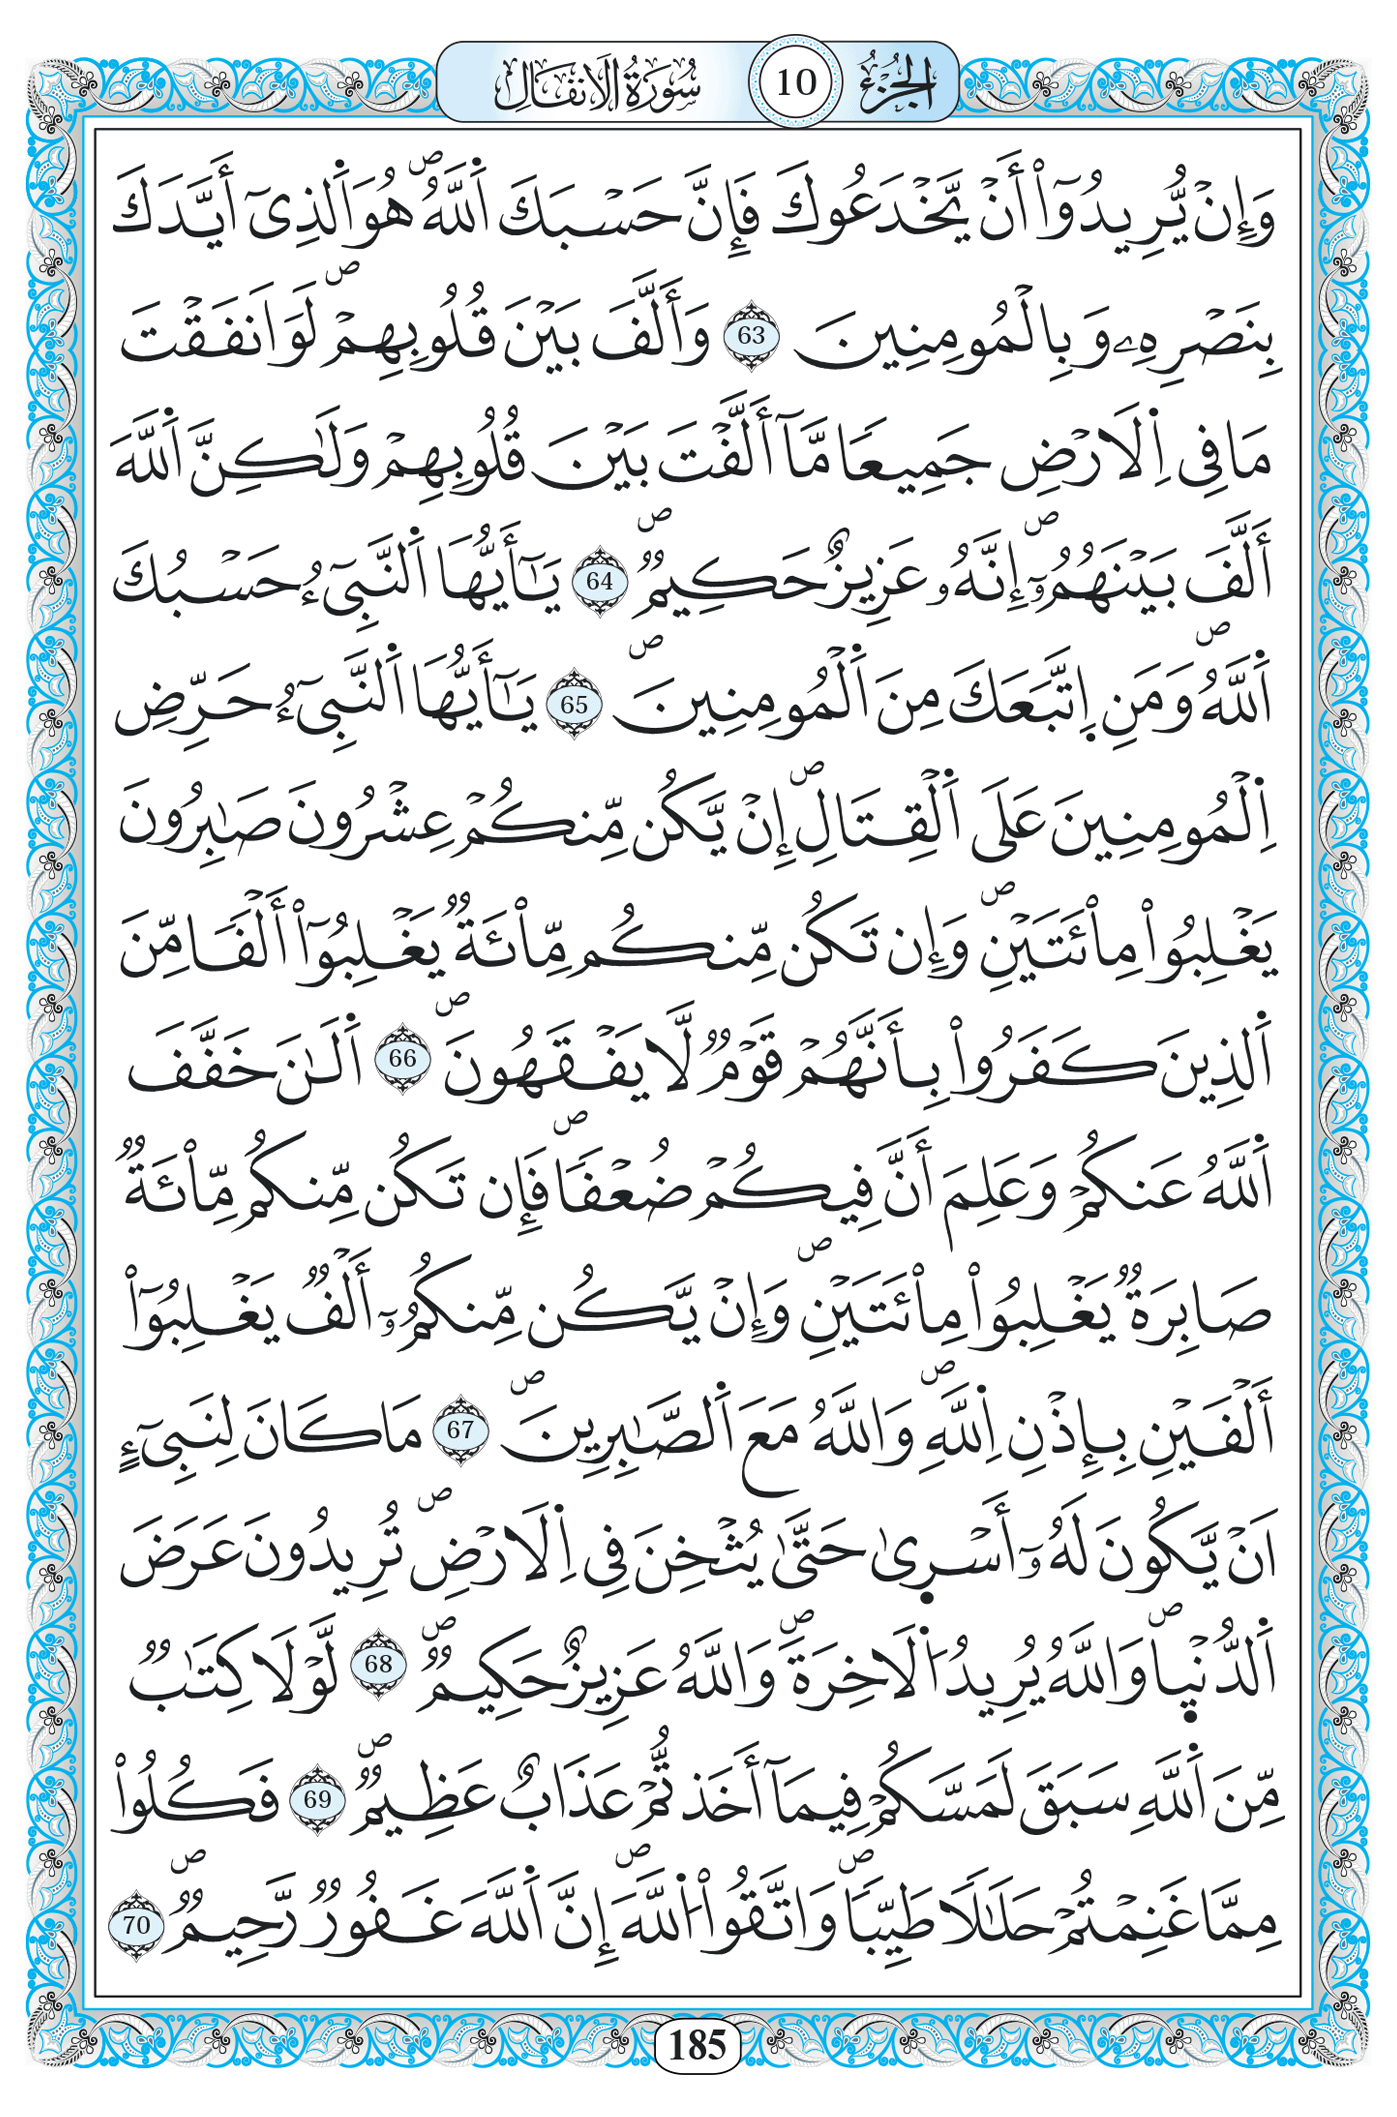 الجزء 10 سورة الانفال
وَإِنْ يُّرِيدُوٓاْ أَنْ يَّخْدَعُوكَ فَإِنَّ حَسْبَكَ اَ۬للَّهُۖ هُوَ اَ۬لذِىٓ أَيَّدَكَ
بِنَصْرِهِۦ وَبِالْمُومِنِينَ 63 وَأَلَّفَ بَيْنَ قُلُوبِهِمْۖ لَوَ اَنفَقْتَ
مَا فِى اِ۬لَارْضِ جَمِيعاٗ مَّآ أَلَّفْتَ بَيْنَ قُلُوبِهِمْ وَلَٰكِنَّ اَ۬للَّهَ
أَلَّفَ بَيْنَهُمُۥٓۖ إِنَّهُۥ عَزِيزٌ حَكِيمٞۖ 64 يَٰٓأَيُّهَا اَ۬لنَّبِىٓءُ حَسْبُكَ
اَ۬للَّهُۖ وَمَنِ اِ۪تَّبَعَكَ مِنَ اَ۬لْمُومِنِينَۖ 65 يَٰٓأَيُّهَا اَ۬لنَّبِىٓءُ حَرِّضِ
اِ۬لْمُومِنِينَ عَلَى اَ۬لْقِتَالِۖ إِنْ يَّكُن مِّنكُمْ عِشْرُونَ صَٰبِرُونَ
يَغْلِبُواْ مِاْئَتَيْنِۖ وَإِن تَكُن مِّنكُم مِّاْئَةٞ يَغْلِبُوٓاْ أَلْفاٗ مِّنَ
اَ۬لذِينَ كَفَرُواْ بِأَنَّهُمْ قَوْمٞ لَّا يَفْقَهُونَۖ 66 اَ۬لَٰنَ خَفَّفَ
اَ۬للَّهُ عَنكُمْ وَعَلِمَ أَنَّ فِيكُمْ ضُعْفاٗۖ فَإِن تَكُن مِّنكُم مِّاْئَةٞ
صَابِرَةٞ يَغْلِبُواْ مِاْئَتَيْنِۖ وَإِنْ يَّكُن مِّنكُمُۥٓ أَلْفٞ يَغْلِبُوٓاْ
أَلْفَيْنِ بِإِذْنِ اِ۬للَّهِۖ وَاللَّهُ مَعَ اَ۬لصَّٰبِرِينَۖ 67 مَا كَانَ لِنَبِىٓءٍ
اَنْ يَّكُونَ لَهُۥٓ أَسْر۪ىٰ حَتَّىٰ يُثْخِنَ فِى اِ۬لَارْضِۖ تُرِيدُونَ عَرَضَ
اَ۬لدُّنْي۪اۖ وَاللَّهُ يُرِيدُ اُ۬لَاخِرَةَۖ وَاللَّهُ عَزِيزٌ حَكِيمٞۖ 68 لَّوْلَا كِتَٰبٞ
مِّنَ اَ۬للَّهِ سَبَقَ لَمَسَّكُمْ فِيمَآ أَخَذتُّمْ عَذَابٌ عَظِيمٞۖ 69 فَكُلُواْ
مِمَّا غَنِمْتُمْ حَلَٰلاٗ طَيِّباٗۖ وَاتَّقُواْ اُ۬للَّهَۖ إِنَّ اَ۬للَّهَ غَفُورٞ رَّحِيمٞۖ 70
185